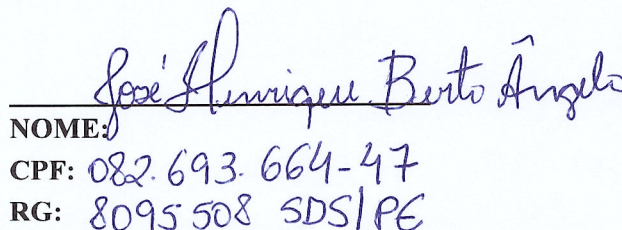 José Henrique Berto Ângelo
NOME:
CPF: 082.693.664-47
RG: 8095508 SDS/PE